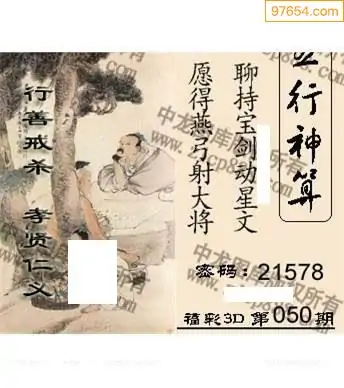 97654.com
五行神算
聊持宝剑动星文
愿得燕弓射大将
行善戒杀 孝贤仁义
密码:21578
福彩3D 第050期
中龙图库版权所有